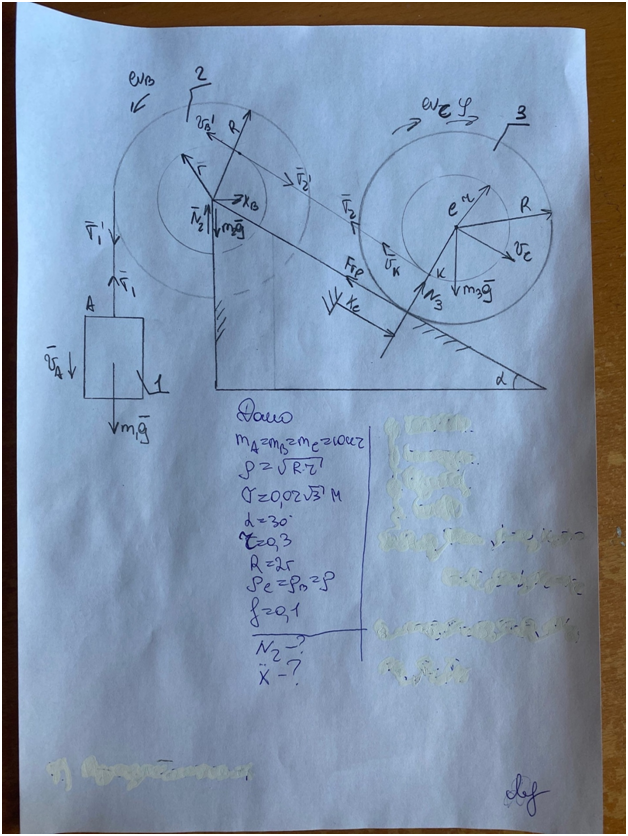 ωB
2
R
V̄B'
r̄
T̄2'
XB
N̄2
m2ḡ
T̄1'
T̄1
A
V̄A
1
m1ḡ
ωC φ
3
R
C r
T̄2
V̄K
K
V̄C
Fтр
N̄3
m3ḡ
XC
α
Дано
mA=mB=mC=10кг
ρ=√R·r
σ=0,02√3 м
α=30°
r=0,3
R=2r
ρC=ρB=ρ
f=0,1
N2-?
Ẍ-?